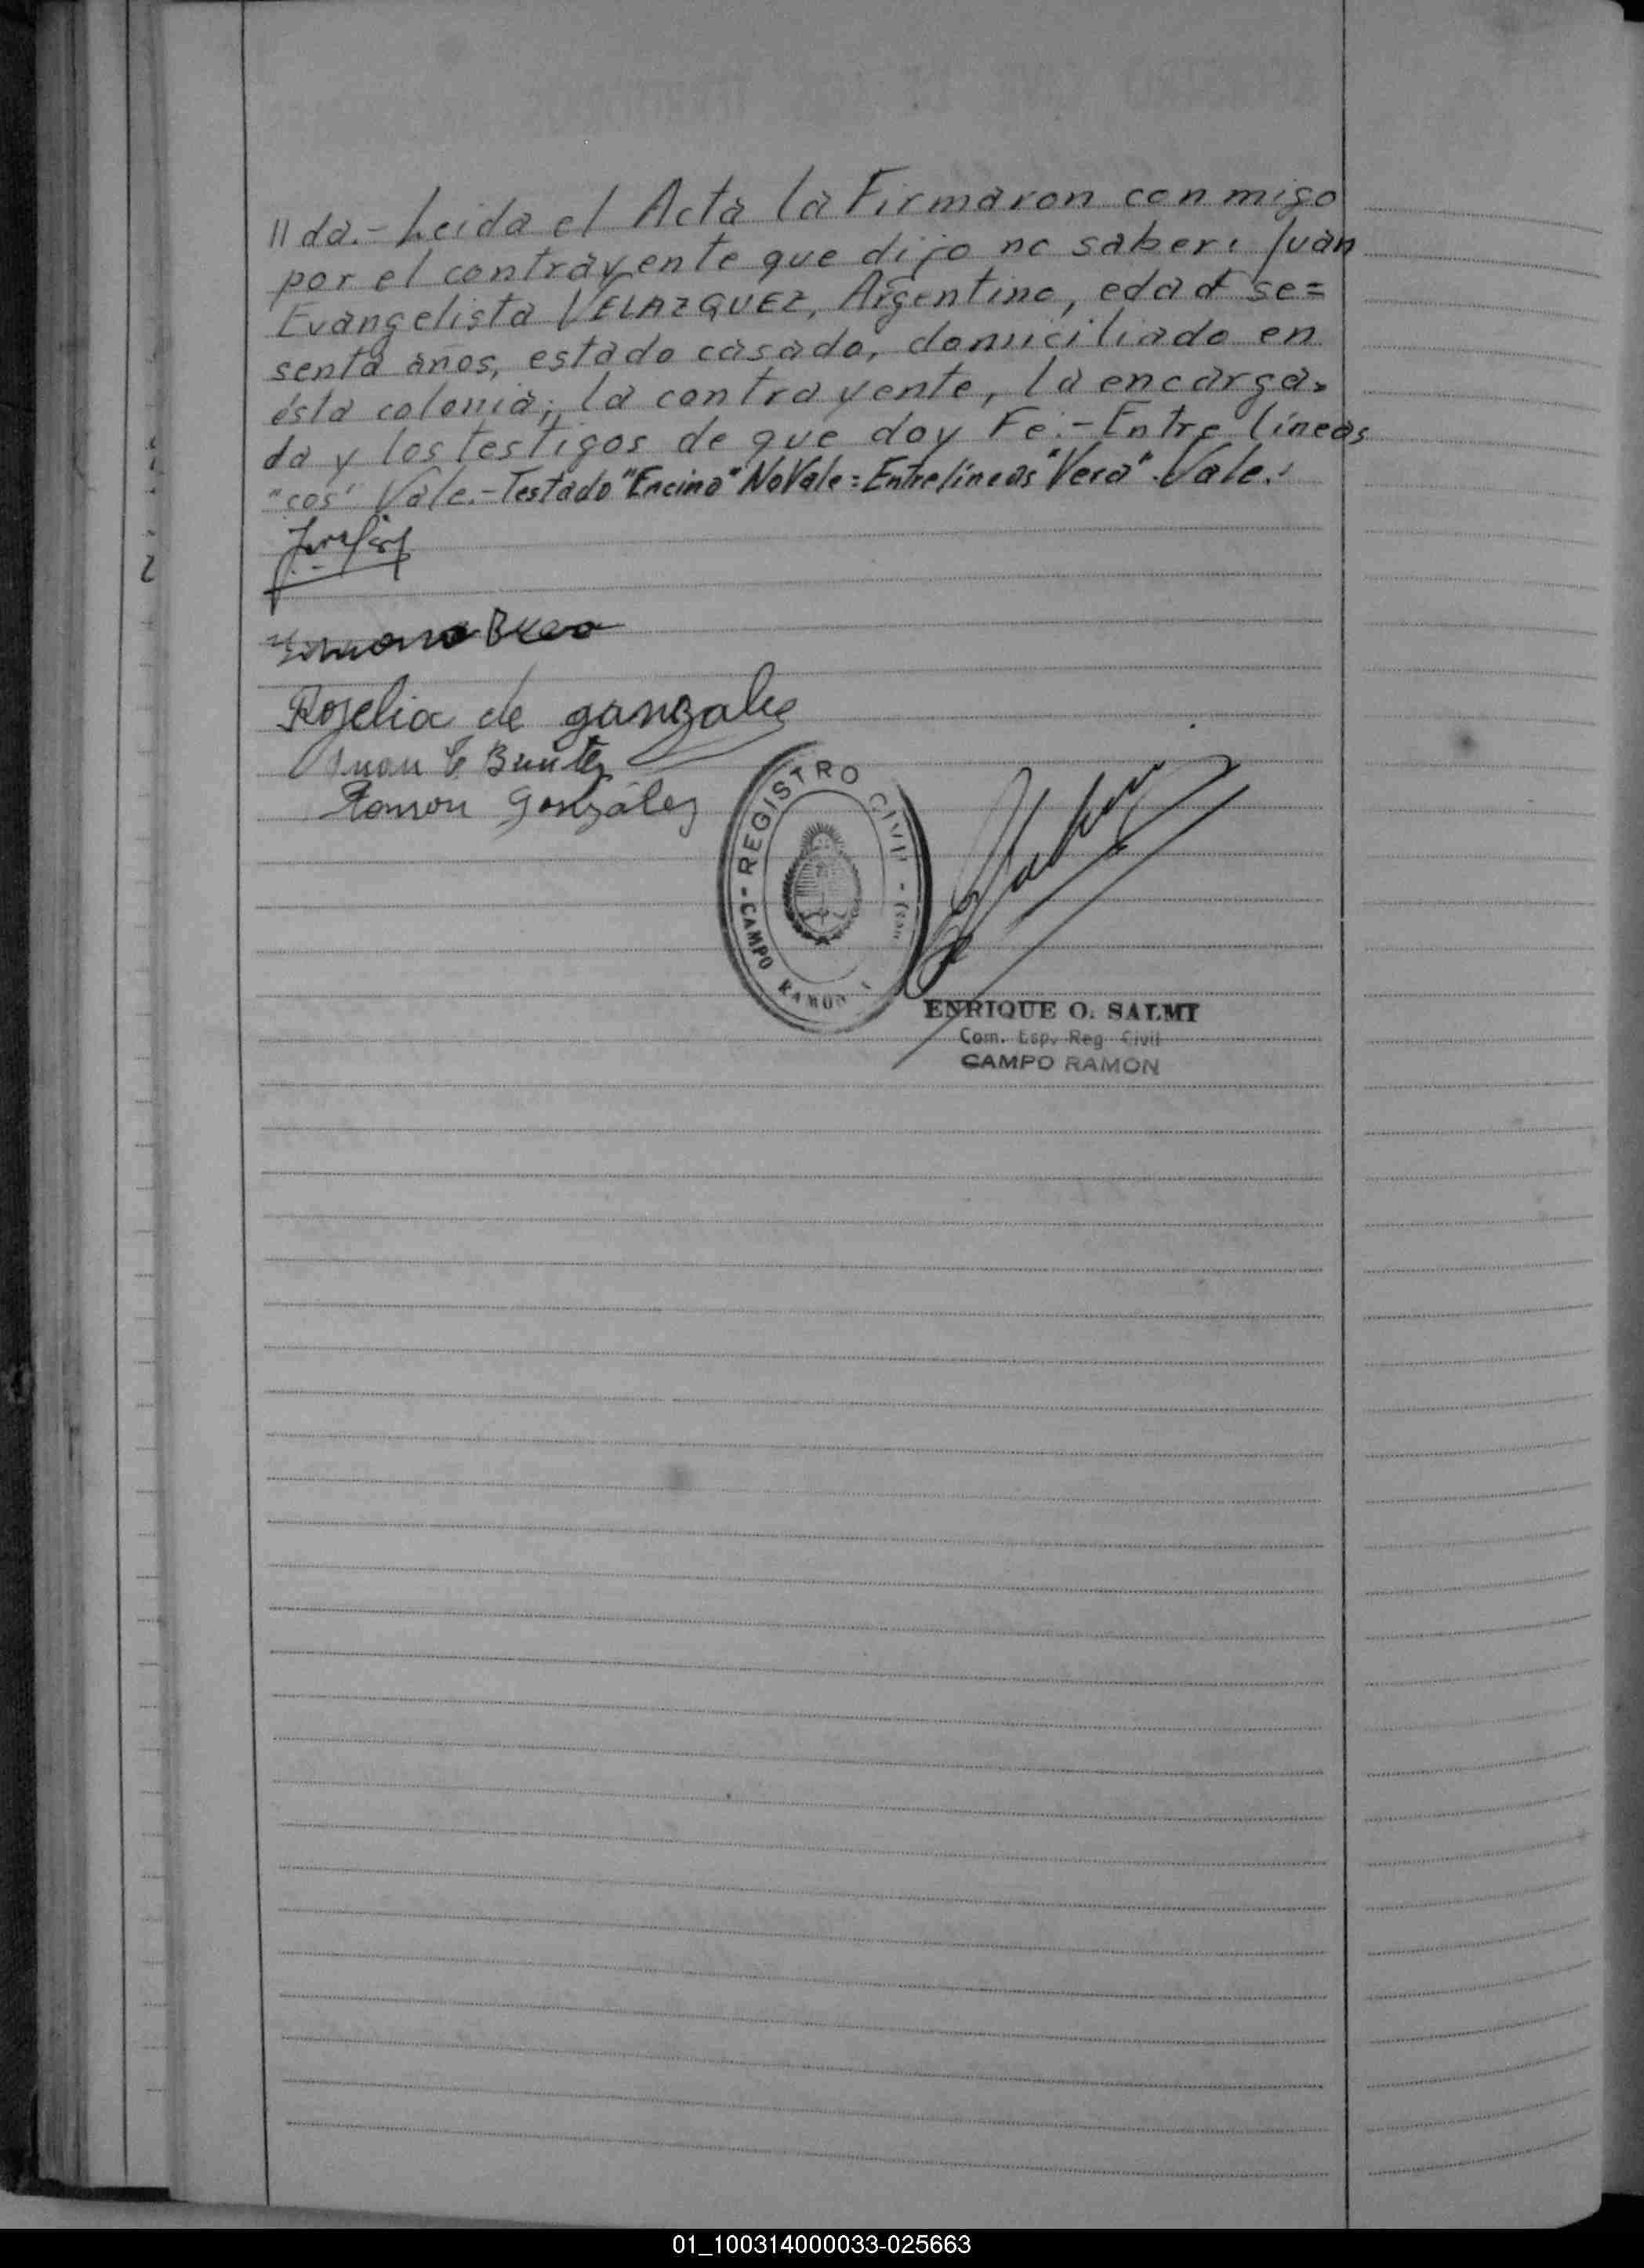 //da.- Leida el Acta la Firmaron conmigo
por el contrayente que dijo no saber: Juan
Evangelista VELAZQUEZ, Argentino, edad se=
senta años, estado casado, domiciliado en
ésta colonia; la contrayente, la encarga=
da y los testigos de que doy Fé.- Entre líneas
"cos" Vale.- Testado "Encina" No Vale = Entrelíneas "Vera" Vale.:
Rojelia de gonzalez
Juan Benitez
Ramon González
REGISTRO CIVIL
- CAMPO RAMON -
ENRIQUE O. SALMI
Com. Esp. Reg. Civil
CAMPO RAMON
01_100314000033-025663